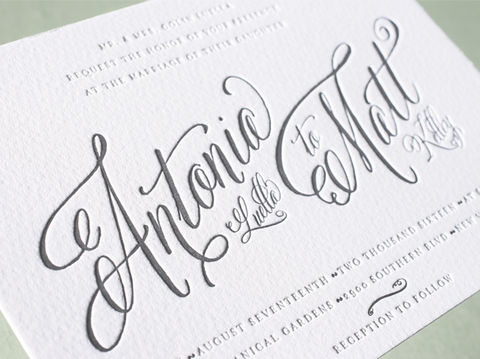 MR. & MRS. COLIN
REQUEST THE HONOR OF YOUR PRESENCE
AT THE MARRIAGE OF THEIR DAUGHTER
Antonia
to
Matt
AUGUST SEVENTEENTH TWO THOUSAND SIXTEEN AT
GARDENS 2900 SOUTHERN BLVD NEW
RECEPTION TO FOLLOW